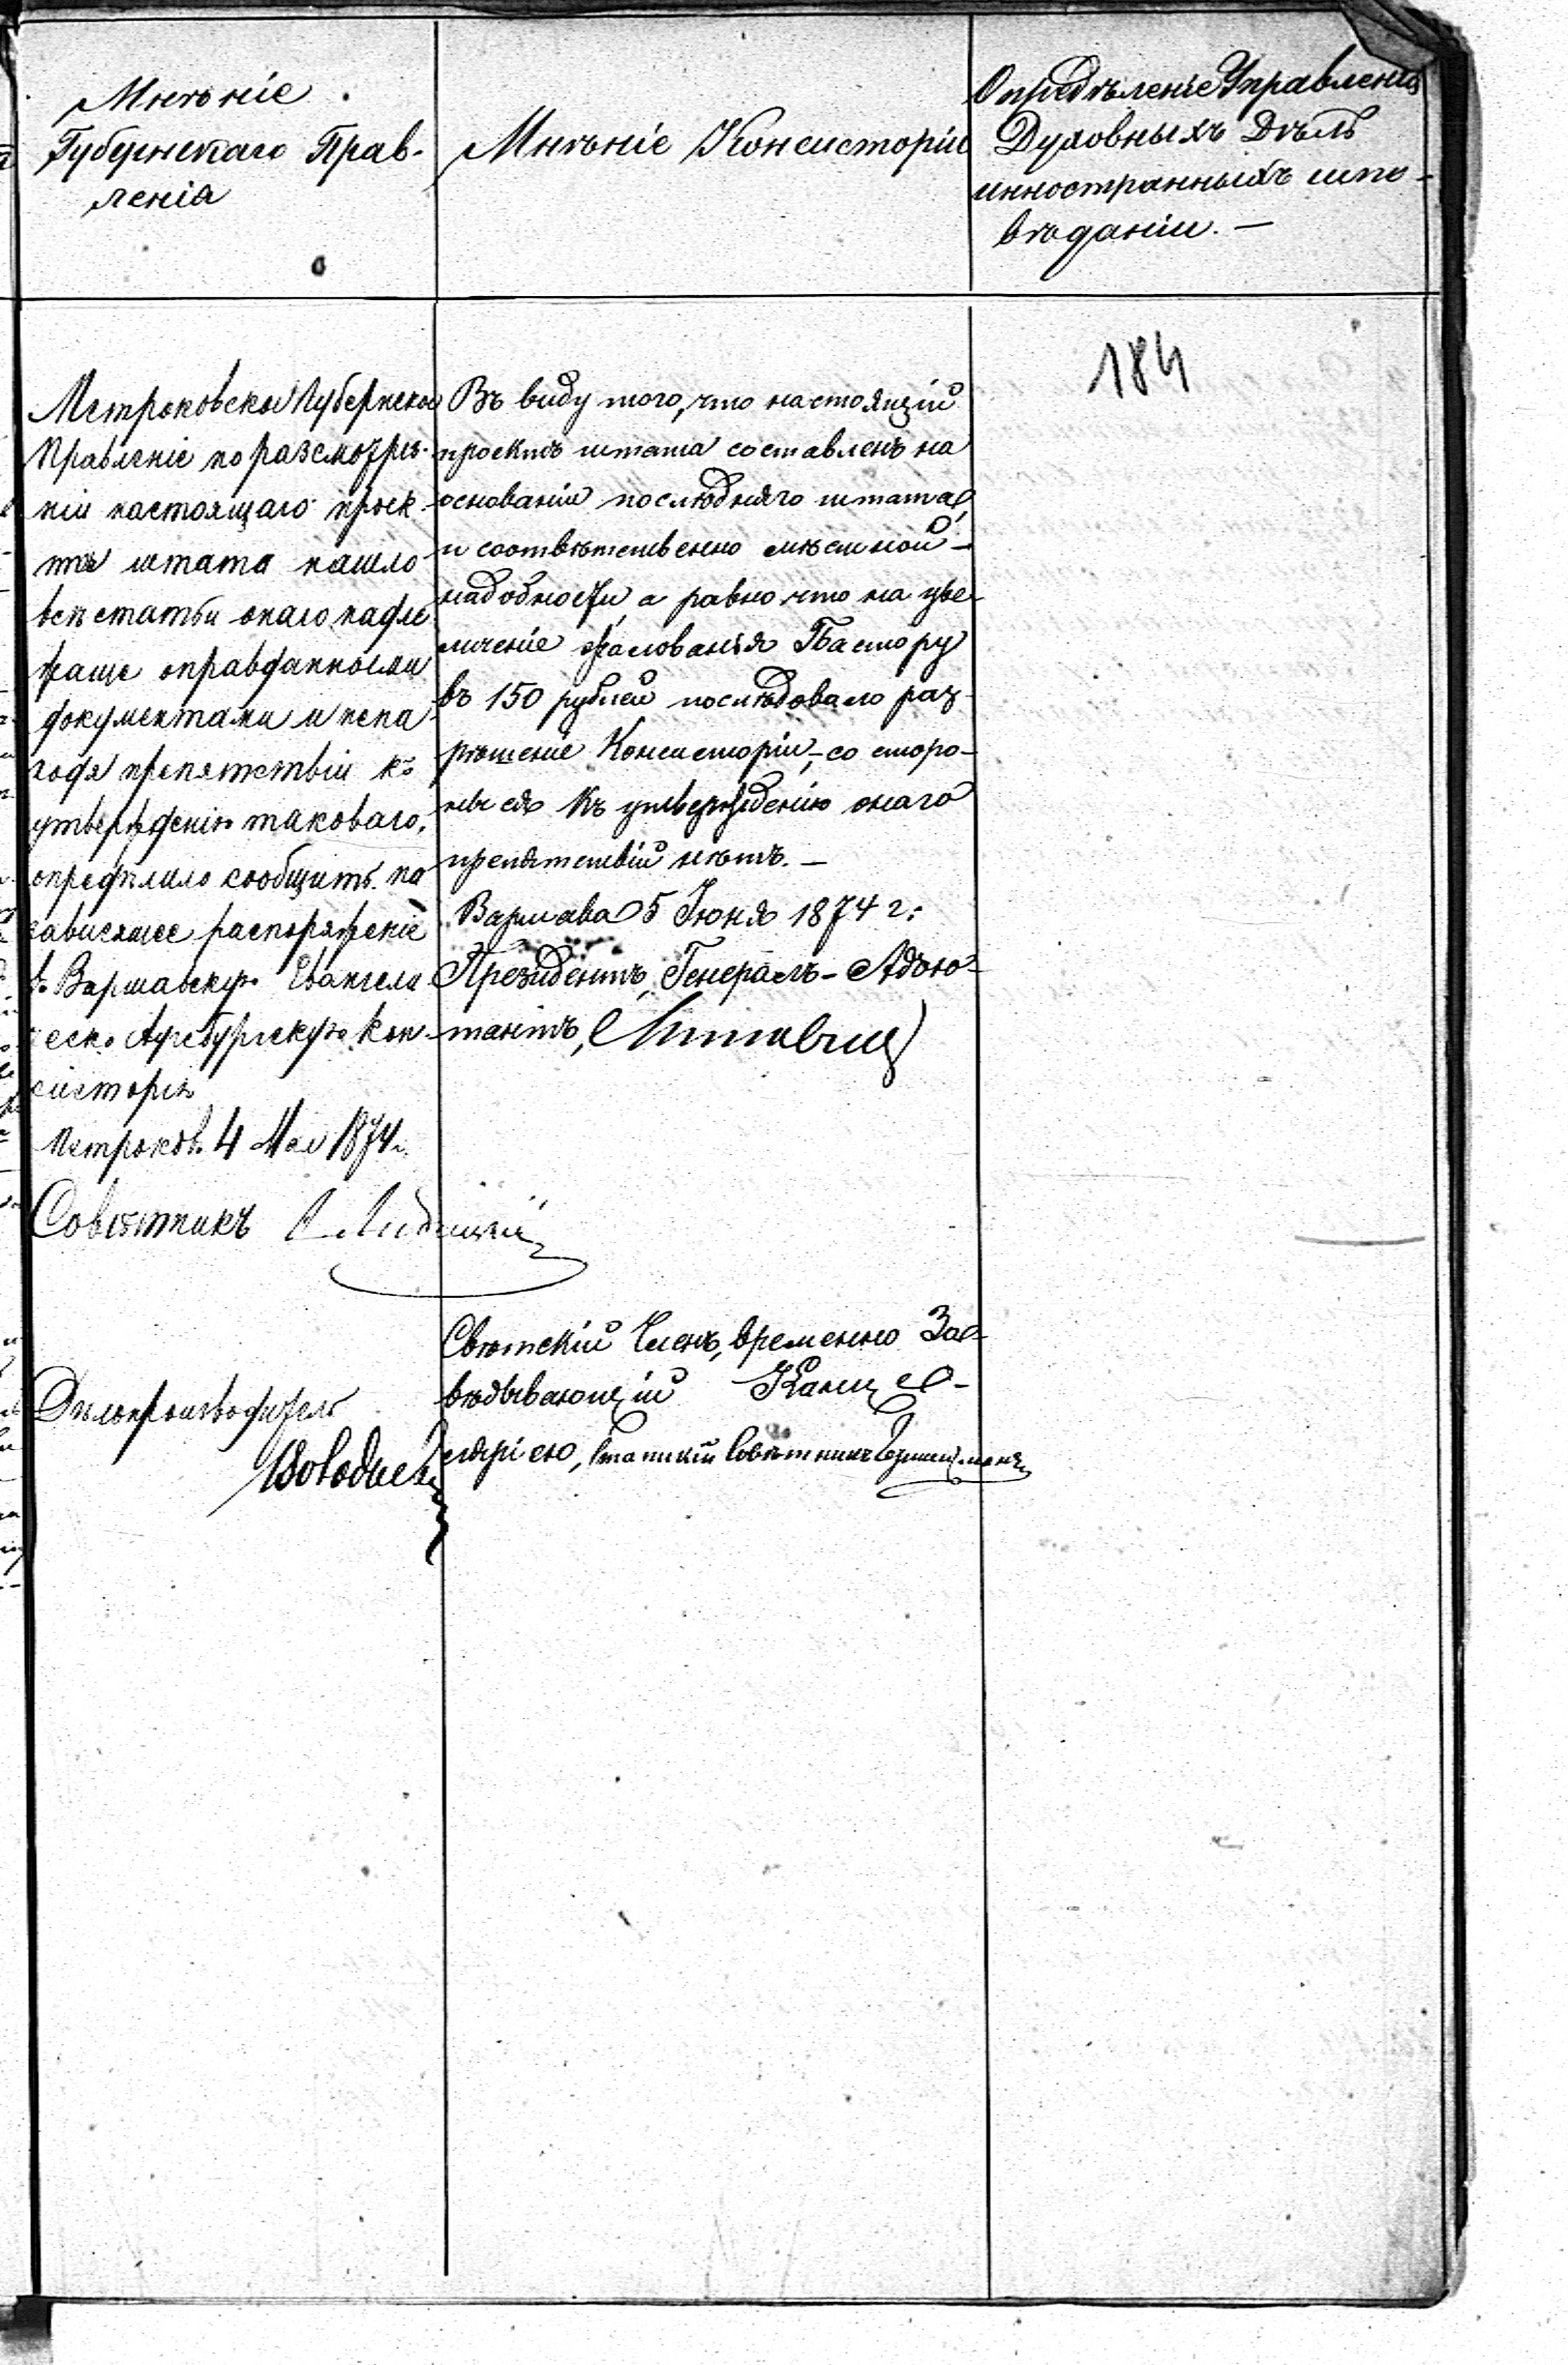 Мнѣніе
Губернскаго Прав-
ленія
Мнѣніе Консисторіи
Опредѣленіе Управленія
Духовныхъ Дѣлъ
инностранныхъ испо-
вѣданіи. —
184
Петроковское Губернское
Правленіе по разсмотрѣ-
ніи настоящаго проек-
та штата нашло
всѣ статьи онаго надле
жаще оправданными
документами и нена
ходя препятствіи къ
утвержденію таковаго,
опредѣлило сообщить на
зависящее распоряженіе
въ Варшавскую Евангели
ческо Аугсбургскую Кон-
систорію
Петроковъ 4 Мая 1874 г.
Совѣтникъ
Дѣлопроизводитель
Въ виду того, что настоящій
проектъ штата составленъ на
основаніи послѣдняго штата,
и соотвѣтственно мѣстной
надобности, а равно что на уве-
личеніе жалованья Пастору
въ 150 рублей послѣдовало раз-
рѣшеніе Консисторіи, — со сторо-
ны ея къ утвержденію онаго
препятствій нѣтъ. —
Варшава 5 Іюня 1874 г.
Президентъ, Генералъ-Адъю-
тантъ,
Свѣтскій Членъ, временно За-
вѣдывающій Канце-
ляріею, Статскій Совѣтникъ